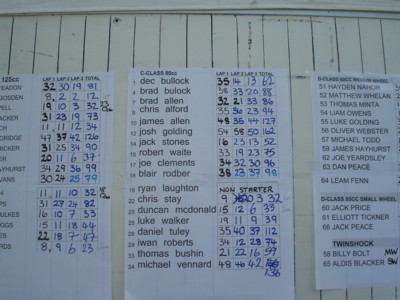 125cc LAP 1 LAP 2 LAP 3 TOTAL
EADON 32 30 19 81
GOSDEN 8 2 2 12
PELL 19 10 3 32
ACKER 31 23 19 73
CH 11 11 12 34
RIDGE 47 37 42 126
CKER 31 25 34 90
20 11 6 37
AYHURST 34 29 36 99
ANS 30 24 25 79
H 11 11 10 32
PS 31 27 24 82
ULKES 16 10 7 33
GGS 15 11 18 44
ES 22 18 7 47
RDS 8 9 6 23
C-CLASS 80cc LAP 1 LAP 2 LAP 3 TOTAL
1 dec bullock 35 14 13 62
4 brad bulock 35 33 20 88
7 brad allen 32 21 33 86
9 chris alford
10 james allen 48 35 44 127
12 josh golding 54 58 50 162
14 jack stones 16 23 13 52
15 robert waite 33 19 23 75
16 joe clements 34 32 30 96
18 blair rodber 38 23 37 98
19 ryan laughton NON STARTER
22 chris stay
23 duncan mcdonald 15 12 6 33
28 luke walker 19 11 9 39
29 daniel tuley 35 40 37 112
31 iwan roberts 34 12 28 74
33 thomas bushin 21 22 16 59
34 michael vennard 48 46 42 136
D-CLASS 60CC WESTON WHEEL
51 HAYDEN NAHOR
52 MATTHEW WHELAN
53 THOMAS MINTA
54 LIAM OWENS
55 LUKE GOLDING
56 OLIVER WEBSTER
57 MICHAEL TODD
59 JAMES HAYHURST
62 JOE YEARDSLEY
63 DAN PEACE
64 LEAM FENN
D-CLASS 60CC SMALL WHEEL
60 JACK PRICE
61 ELLIOTT TICKNER
66 JACK PEACE
TWINSHOCK
58 BILLY BOLT MW
65 ALDIS BLACKER SW